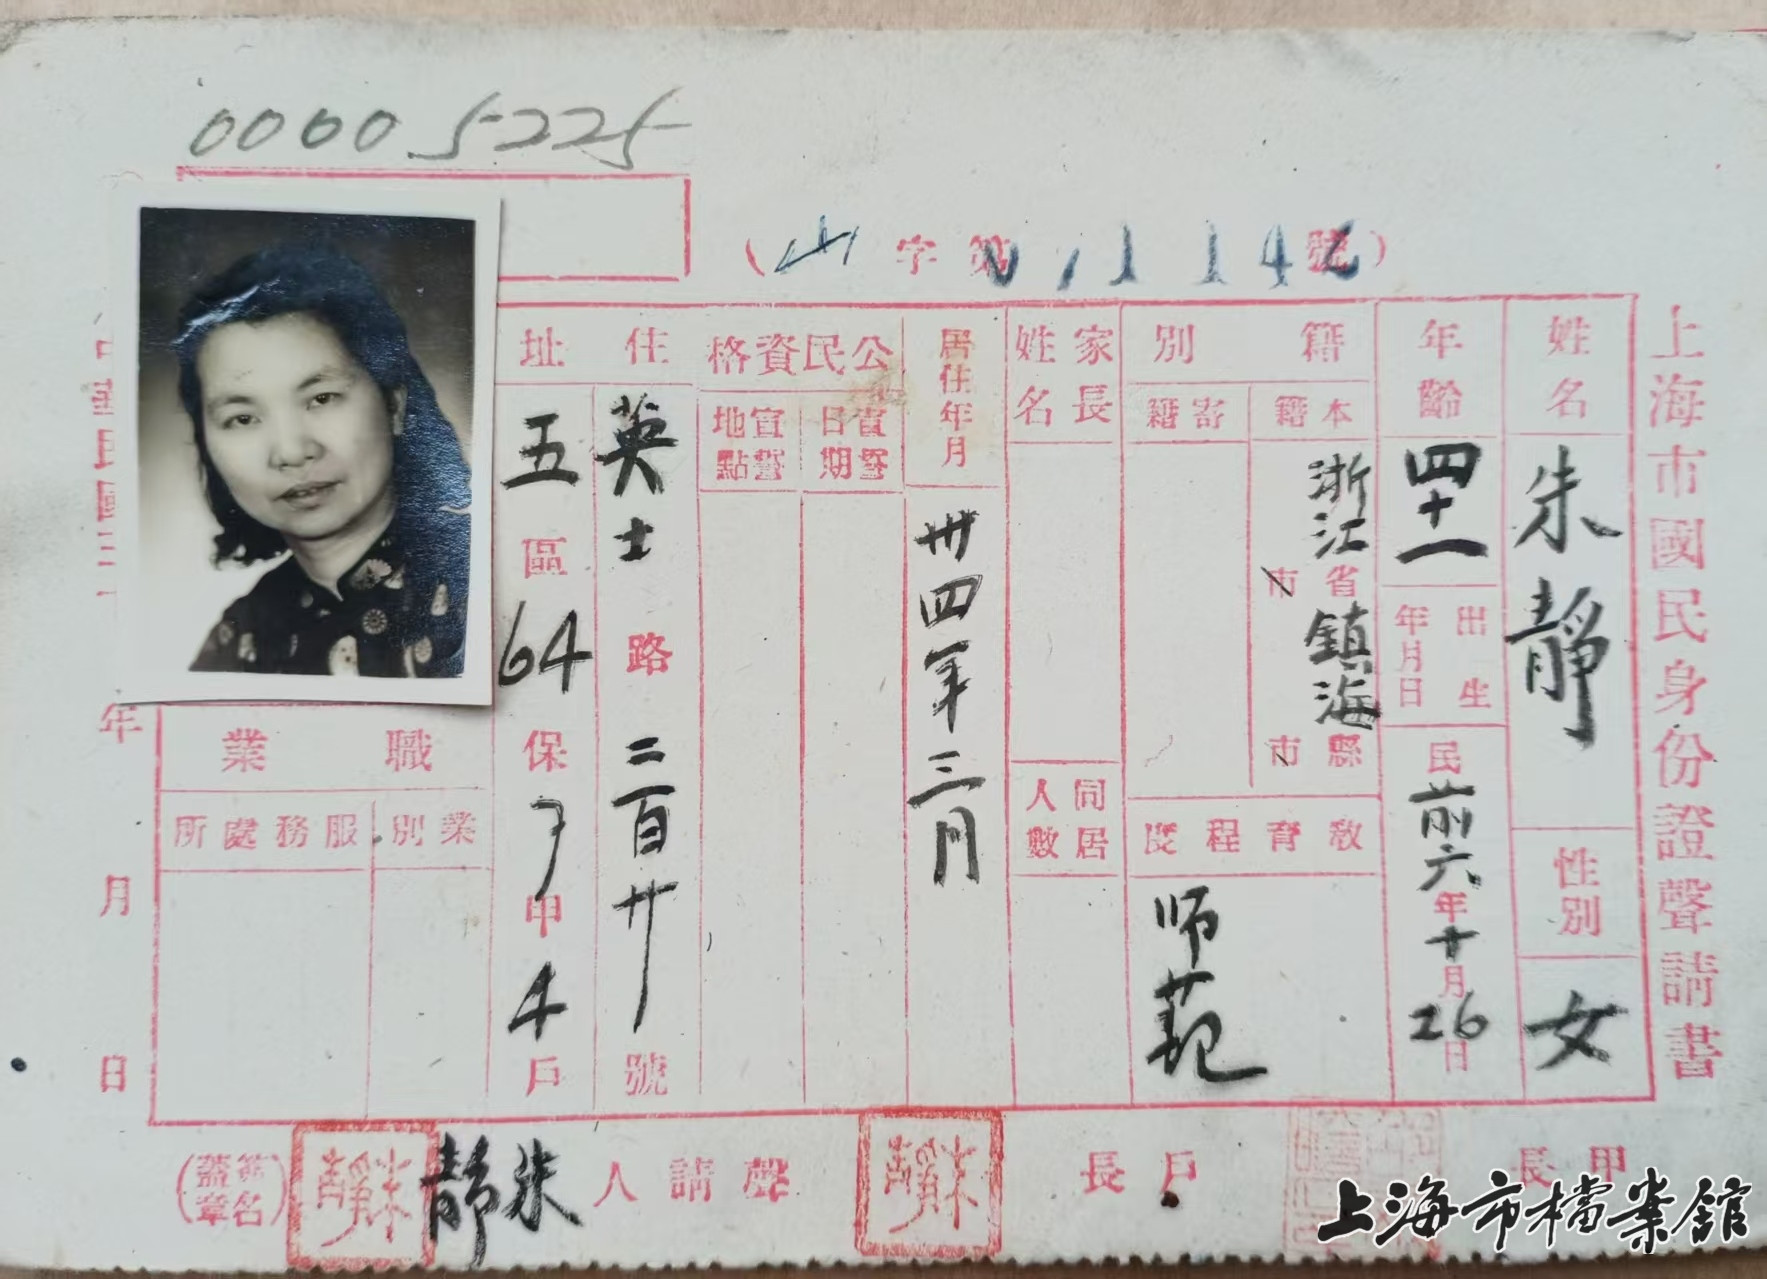 00005225
(山字第 1142號)
上海市國民身份證聲請書
姓名
朱靜
性別
女
年齡
四十一
出生年月日
民前六年十月26日
籍別
本籍
浙江省市鎮海縣市
寄籍
教育程度
师范
家長姓名
同居人數
居住年月
卅四年三月
公民資格
宣誓日期
宣誓地點
住址
英士路二百廿號
五區64保7甲4戶
職業
業別
服務處所
中華民國三十
年月日
甲長
戶長
朱靜
聲請人
朱靜
朱靜
(簽名蓋章)
上海市檔案館